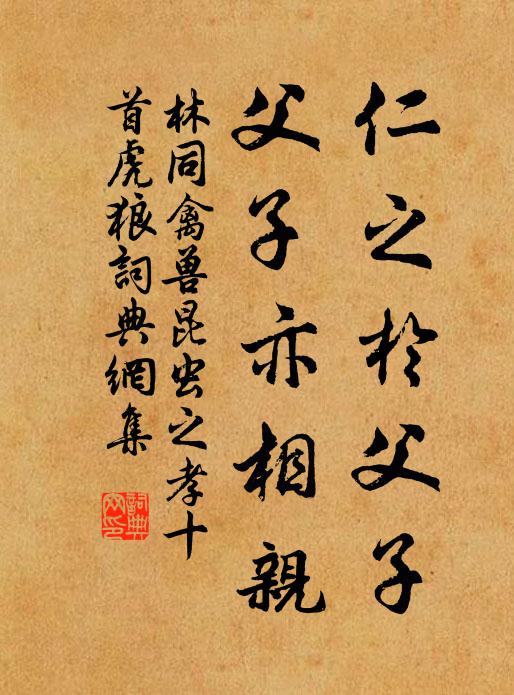 仁之於父子
父子亦相親
林同禽兽昆虫之孝十
首虎狼詞典網集
詞典网印